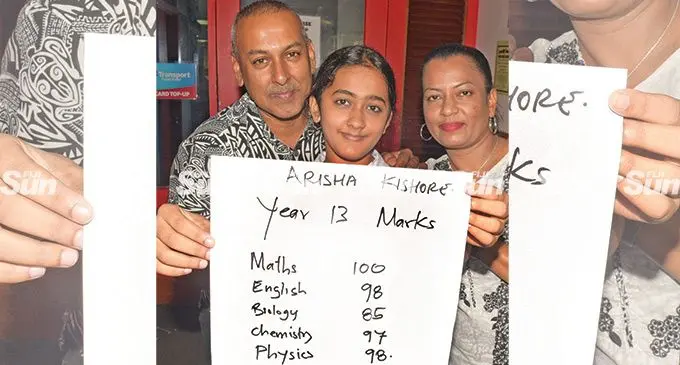 Transport
CARD TOP-UP
ARISHA KISHORE.
Year 13 Marks
Maths 100
English 98
Biology 85
Chemistry 97
Physics 98.
HORE.
ks
FIJI
Sun
FIJI
Sun